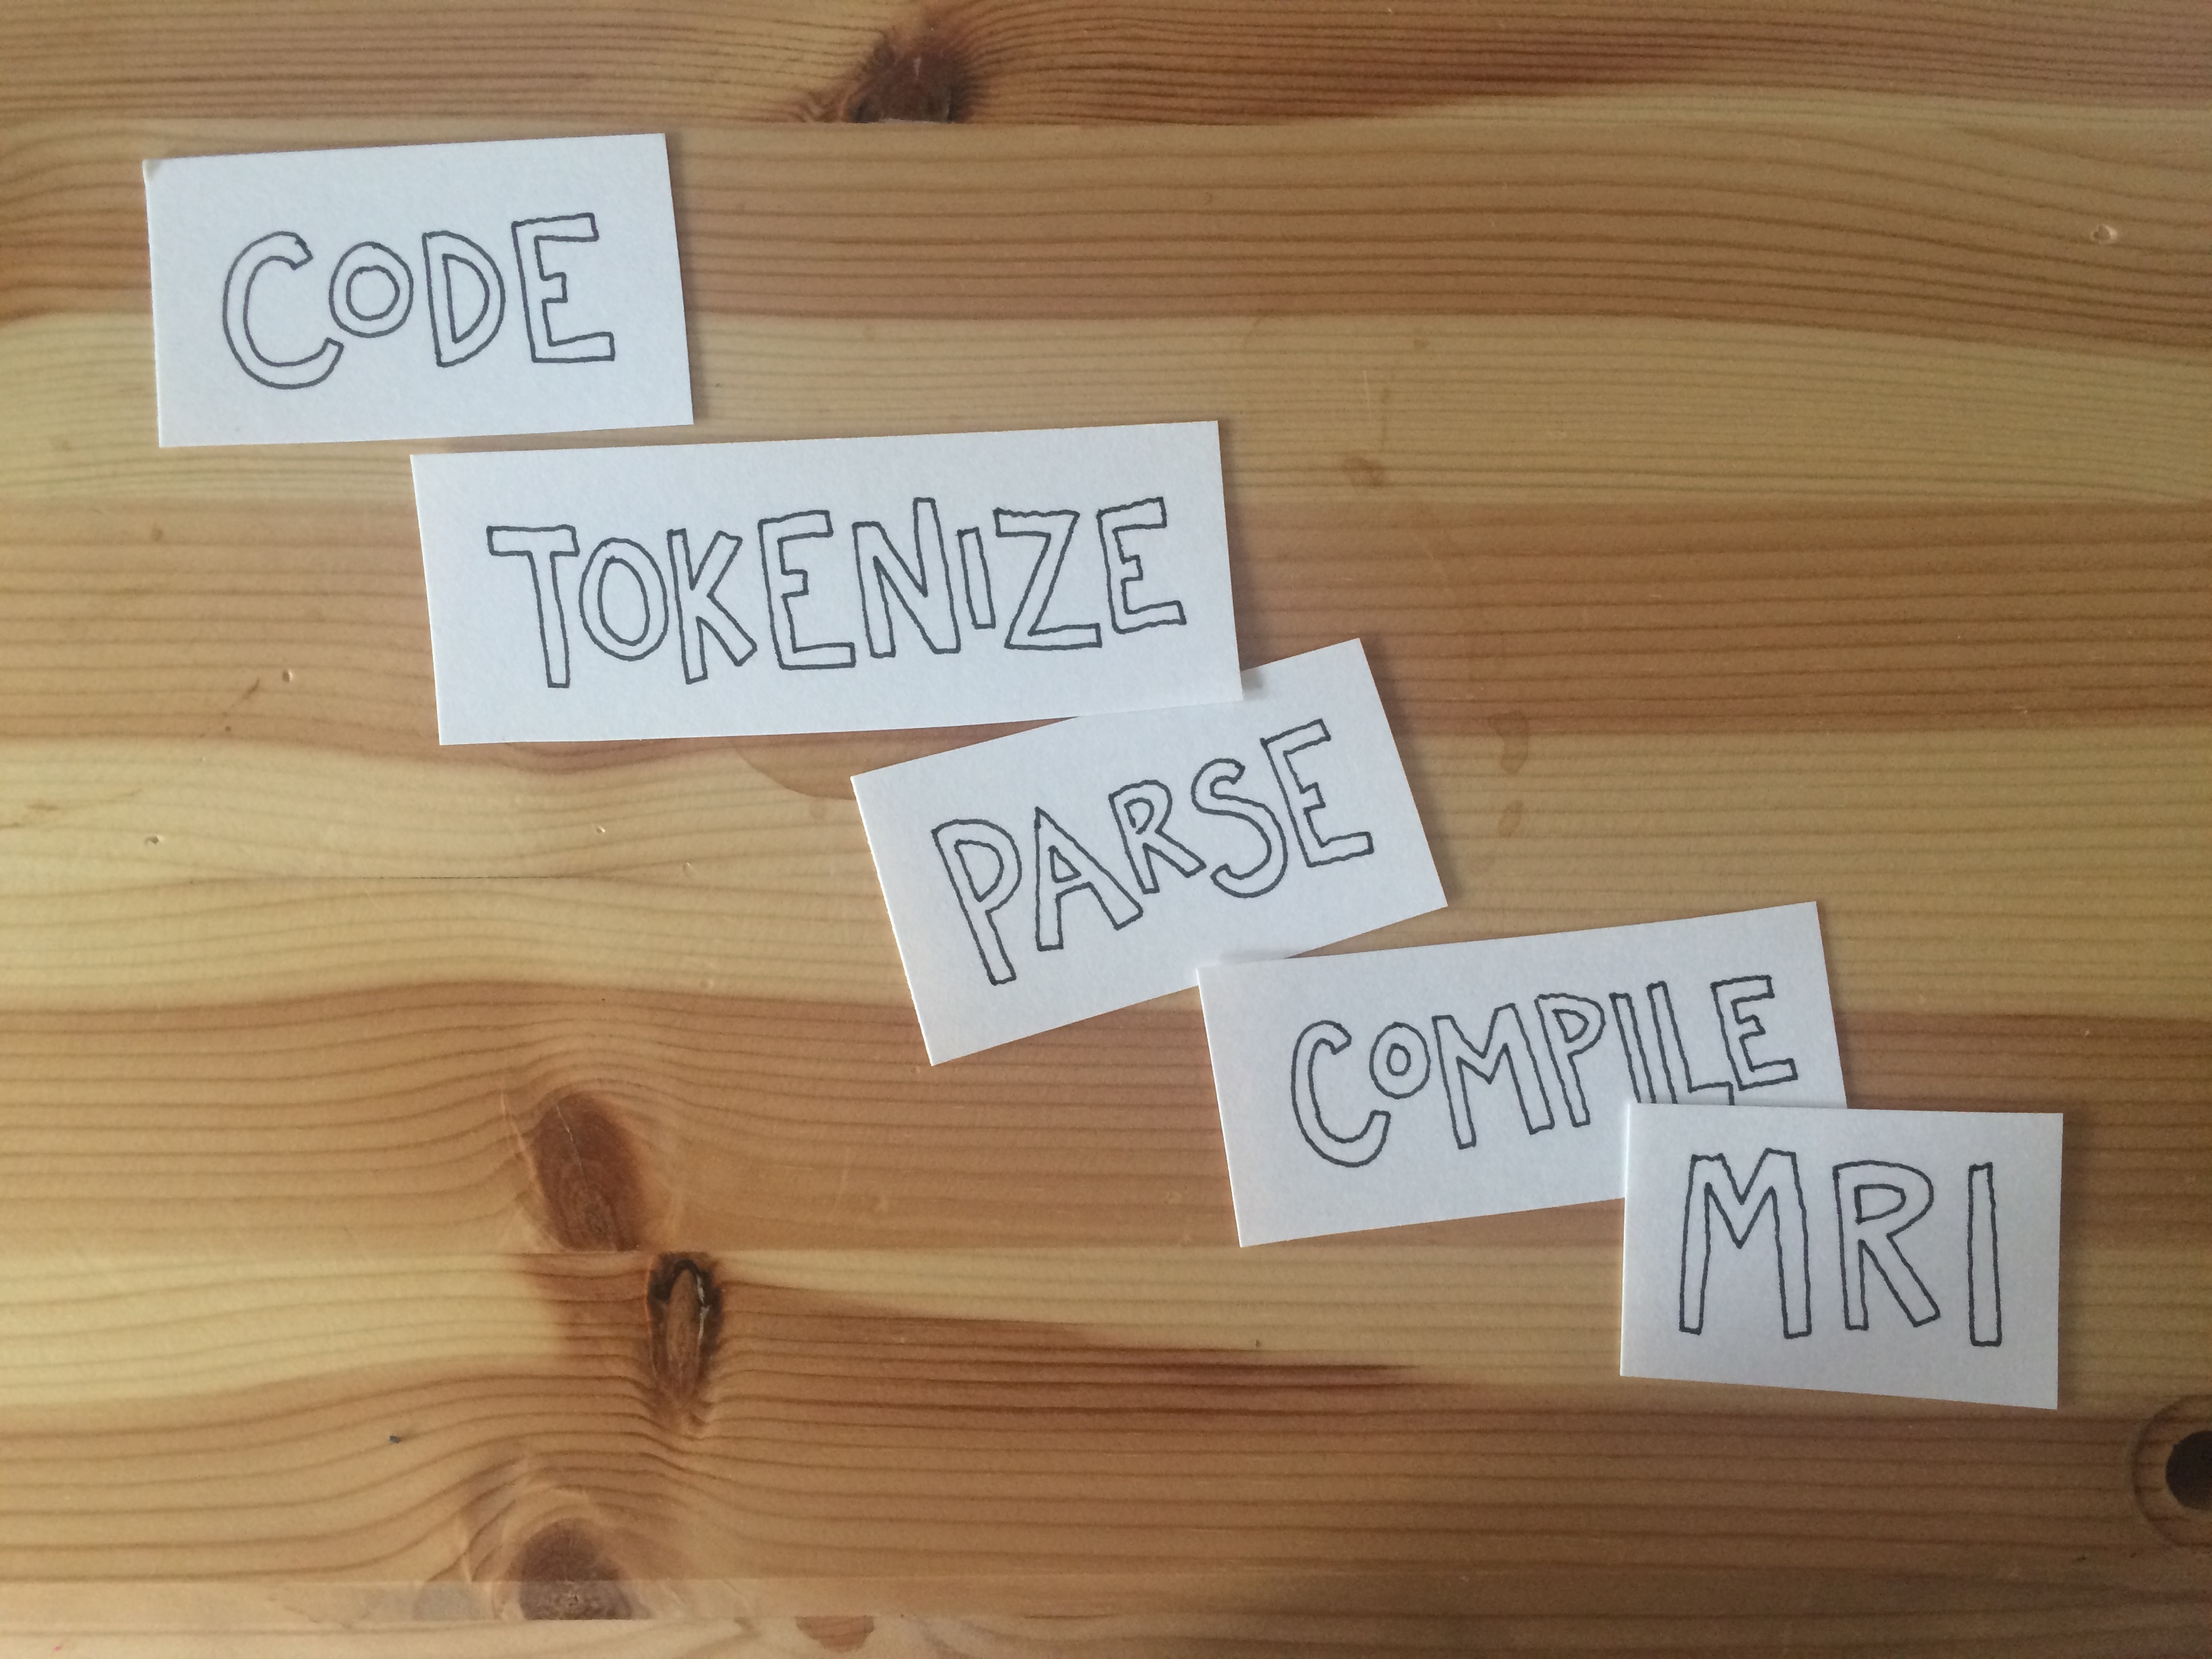 CODE
TOKENIZE
PARSE
COMPILE
MRI